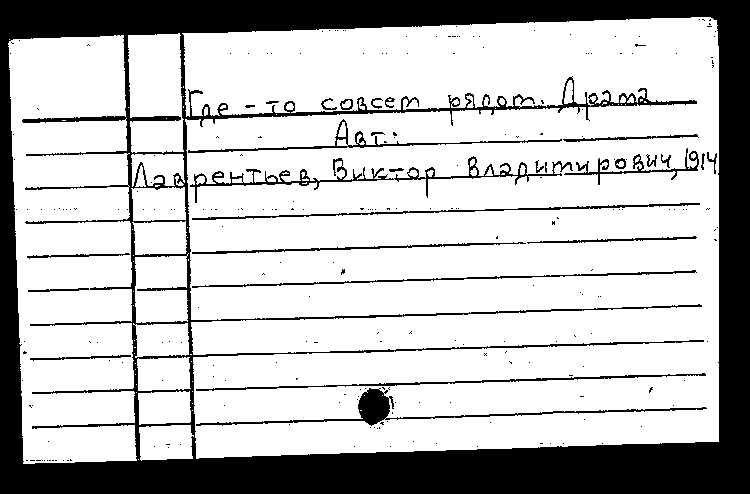 Где-то совсем рядом. Драма
Авт.:
Лаврентьев, Виктор Владимирович, 1914